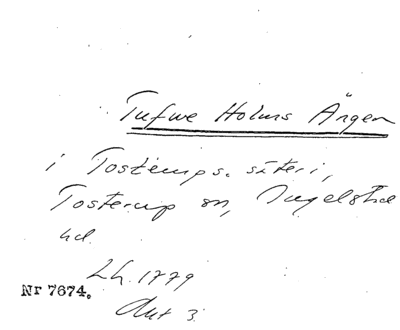 Tufwe Holms Ängen
i Tosterups. säteri,
Tosterup sn, Ingelstad
hd.
Lh. 1779
Nr 7674.
Akt 3